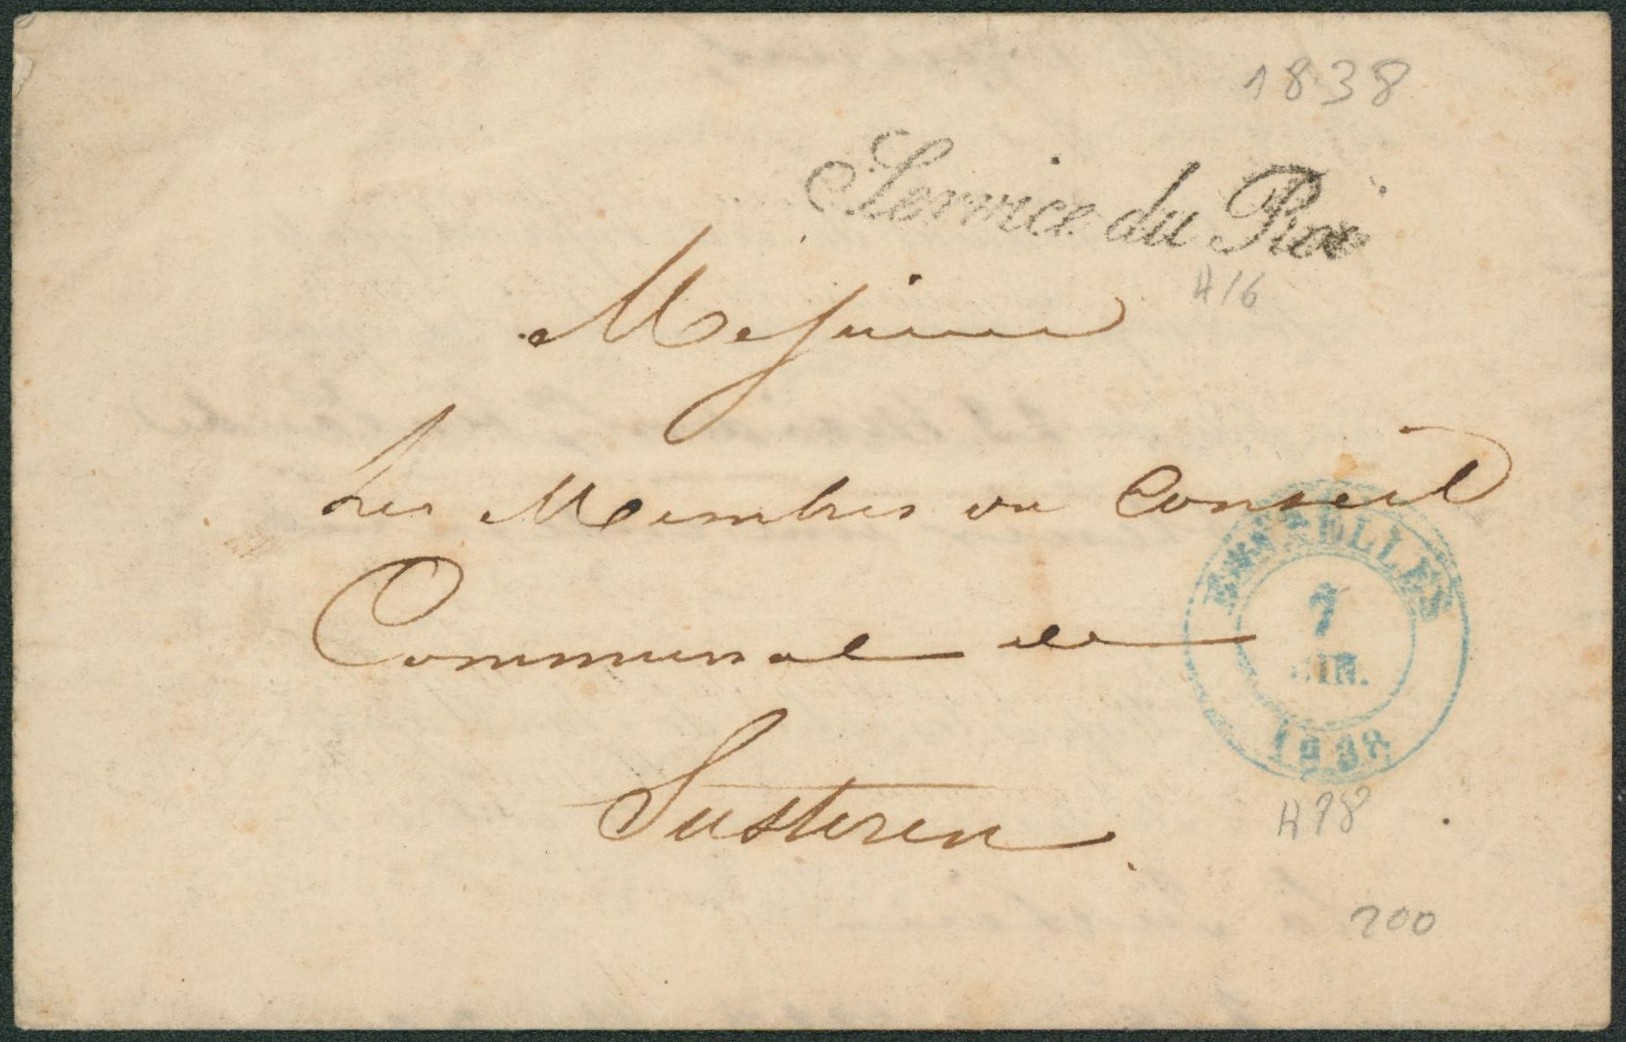 1838
Service du Roi
H16
Messieurs
Les Membres du Conseil
Communal de
Susteren
BRUXELLES
7
JUIN.
1838
H18
200